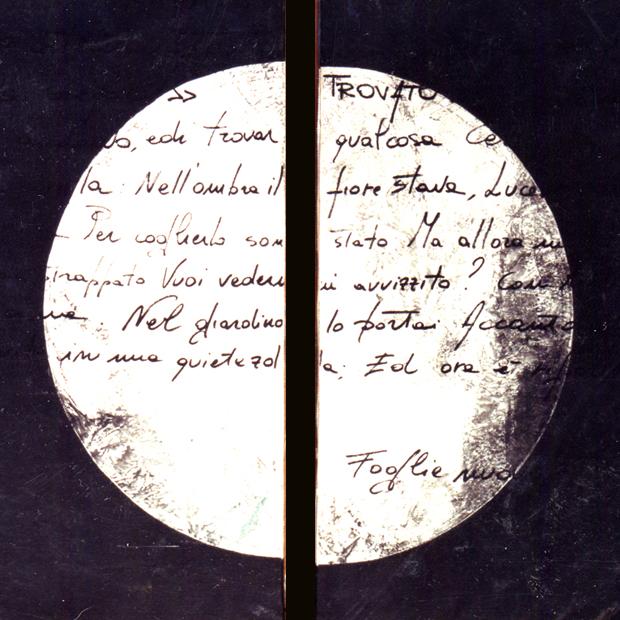 >> TROVATO
vo, edi trovar qualcosa Ce
la. Nell'ombra il fiore stava, Luce
Per coglierlo son stato Ma allora
trappato Vuoi veder avvizzito? Con
Nel giardino lo portai Accanto
in una quieta zol la; Ed ora è
Foglie nuo